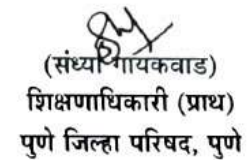 (संध्या गायकवाड)
शिक्षणाधिकारी (प्राथ)
पुणे जिल्हा परिषद, पुणे